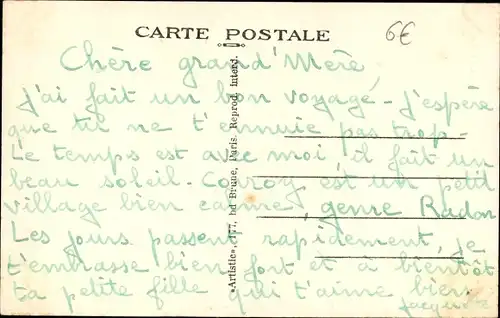 CARTE POSTALE
6€
Chère grand'Mère,
J'ai fait un bon voyage - J'espère
que tu ne t'ennuie pas trop -
Le temps est avec moi il fait un
beau soleil - est un petit
village bien calme, genre Radon
Les jours passent rapidement, je
t'embrasse bien fort et à bientôt
ta petite fille qui t'aime bien
«Artistic», 177, bd Brune, Paris. Reprod. Interd.